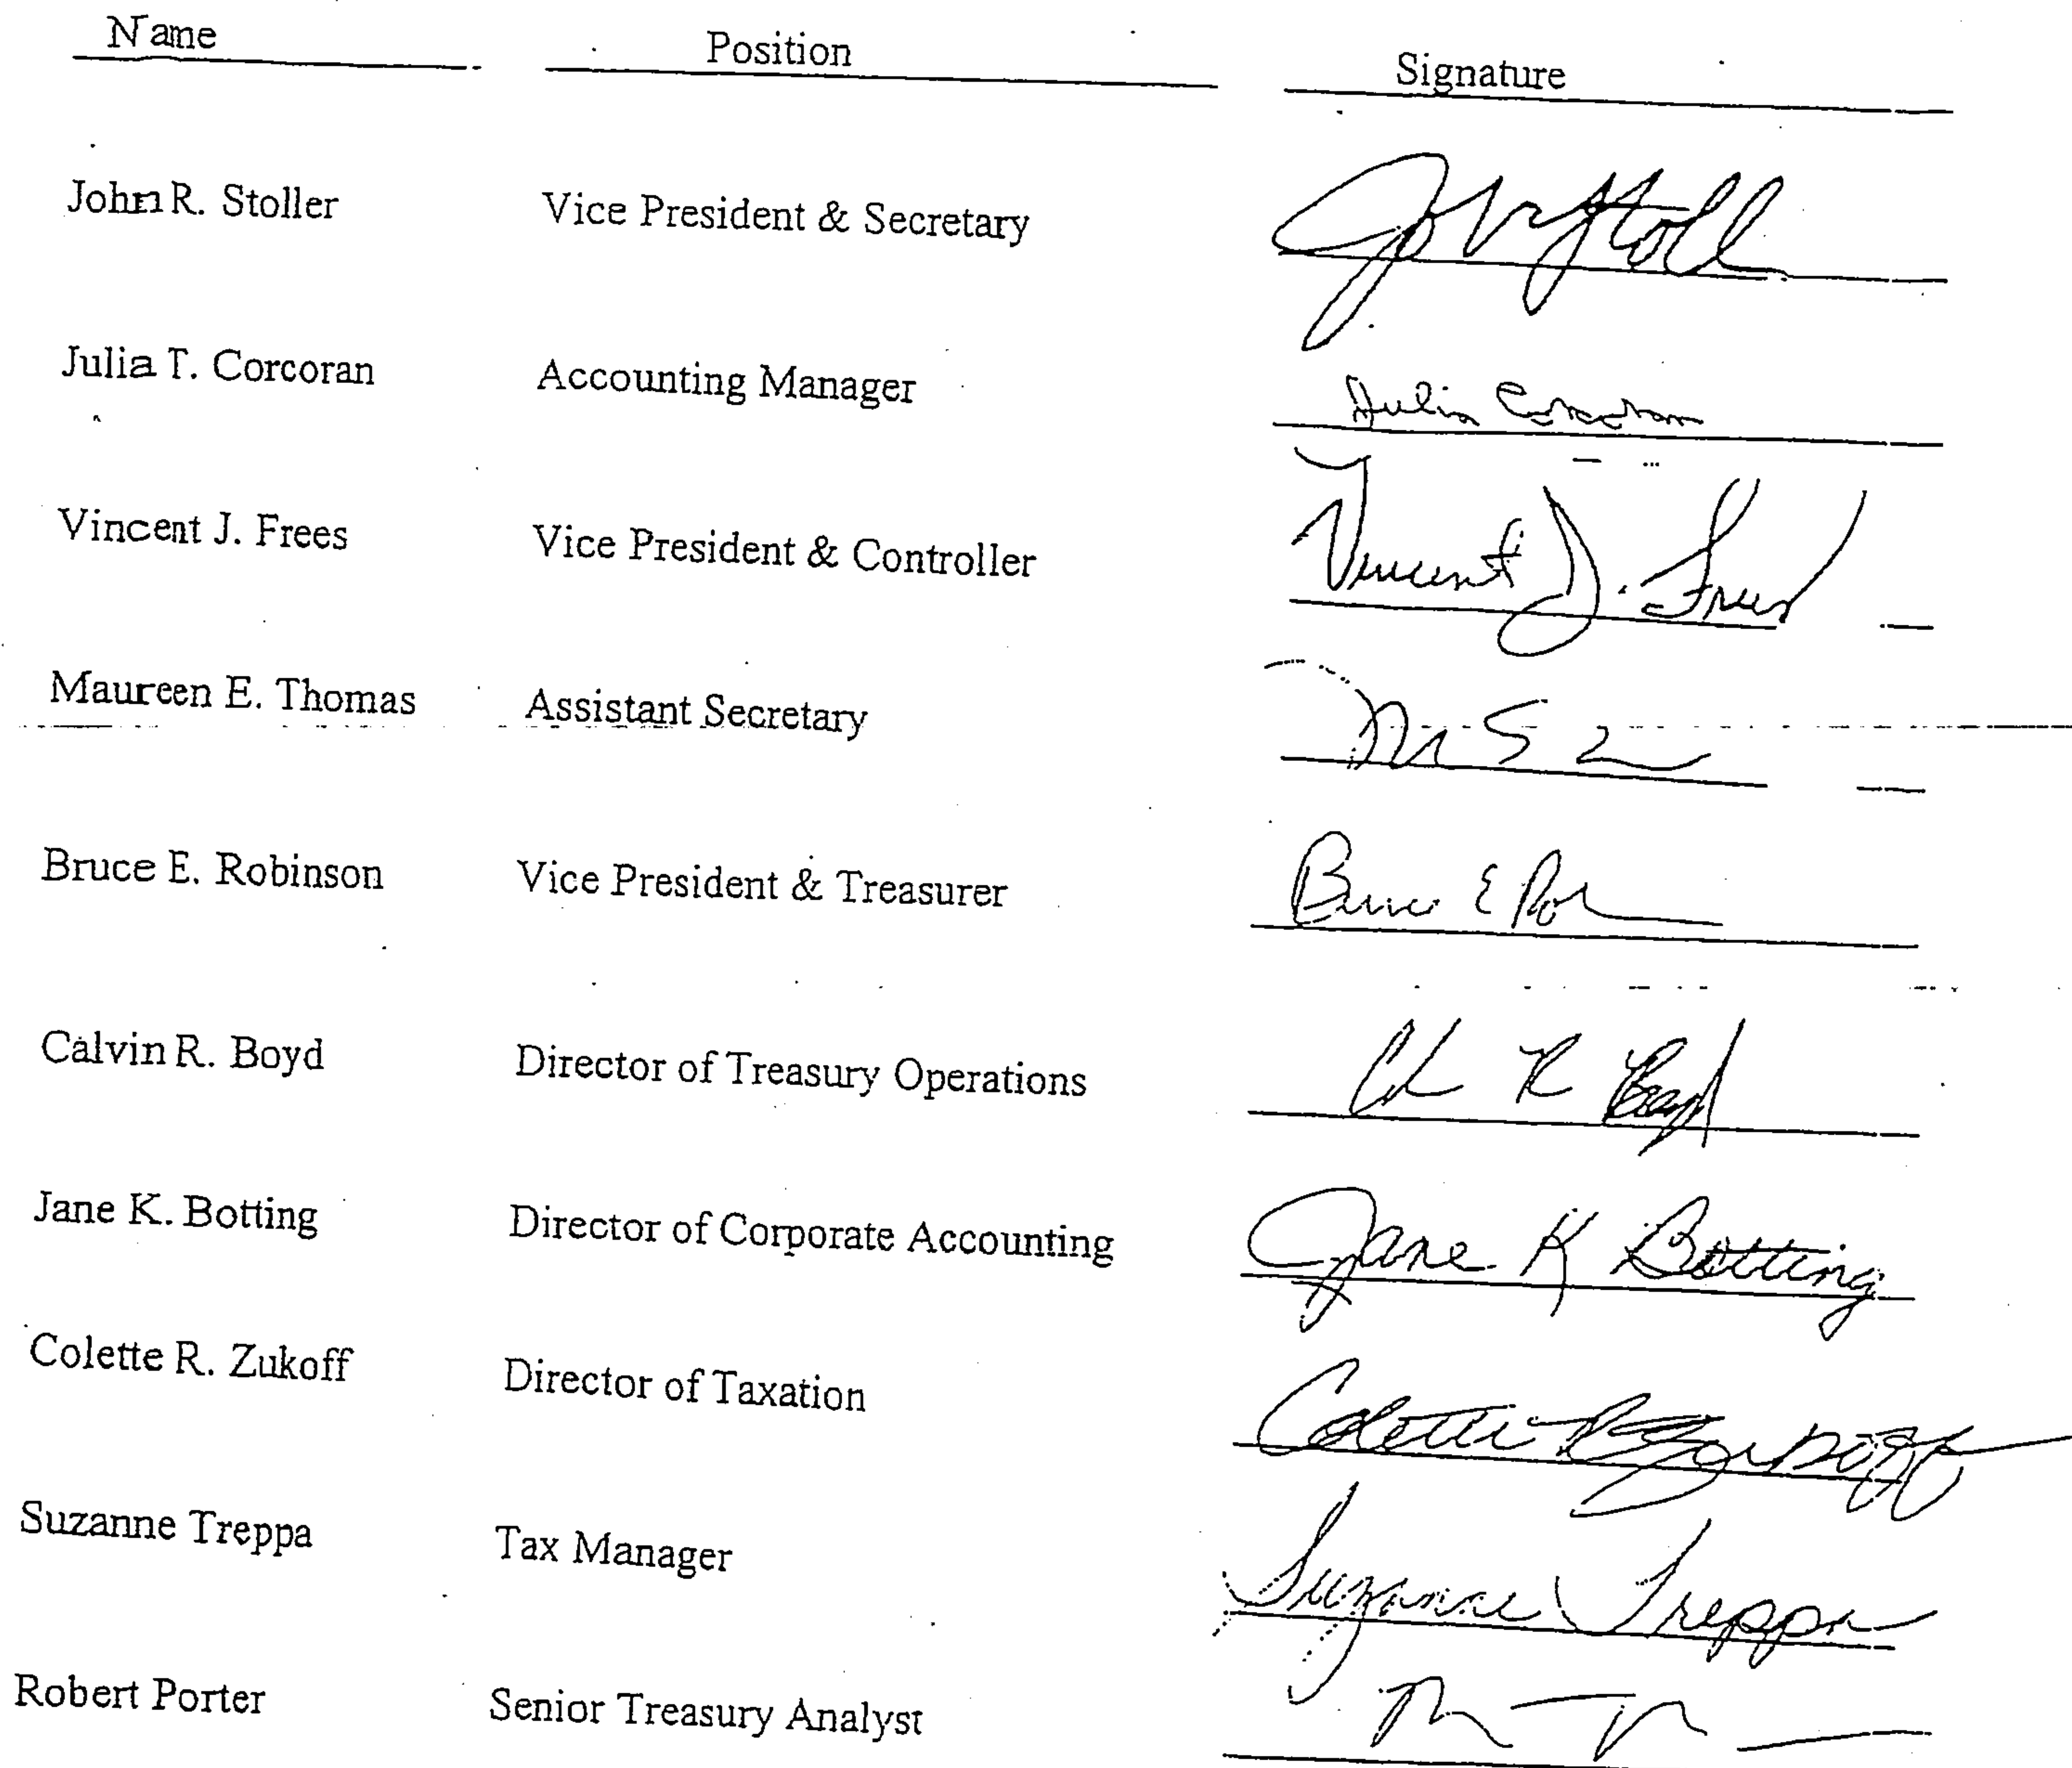 Name Position Signature
John R. Stoller Vice President & Secretary
Julia T. Corcoran Accounting Manager Julia Corcoran
Vincent J. Frees Vice President & Controller Vincent J. Frees
Maureen E. Thomas Assistant Secretary
Bruce E. Robinson Vice President & Treasurer Bruce E
Calvin R. Boyd Director of Treasury Operations R Boyd
Jane K. Botting Director of Corporate Accounting Jane K Botting
Colette R. Zukoff Director of Taxation Colette R Zukoff
Suzanne Treppa Tax Manager Suzanne Treppa
Robert Porter Senior Treasury Analyst